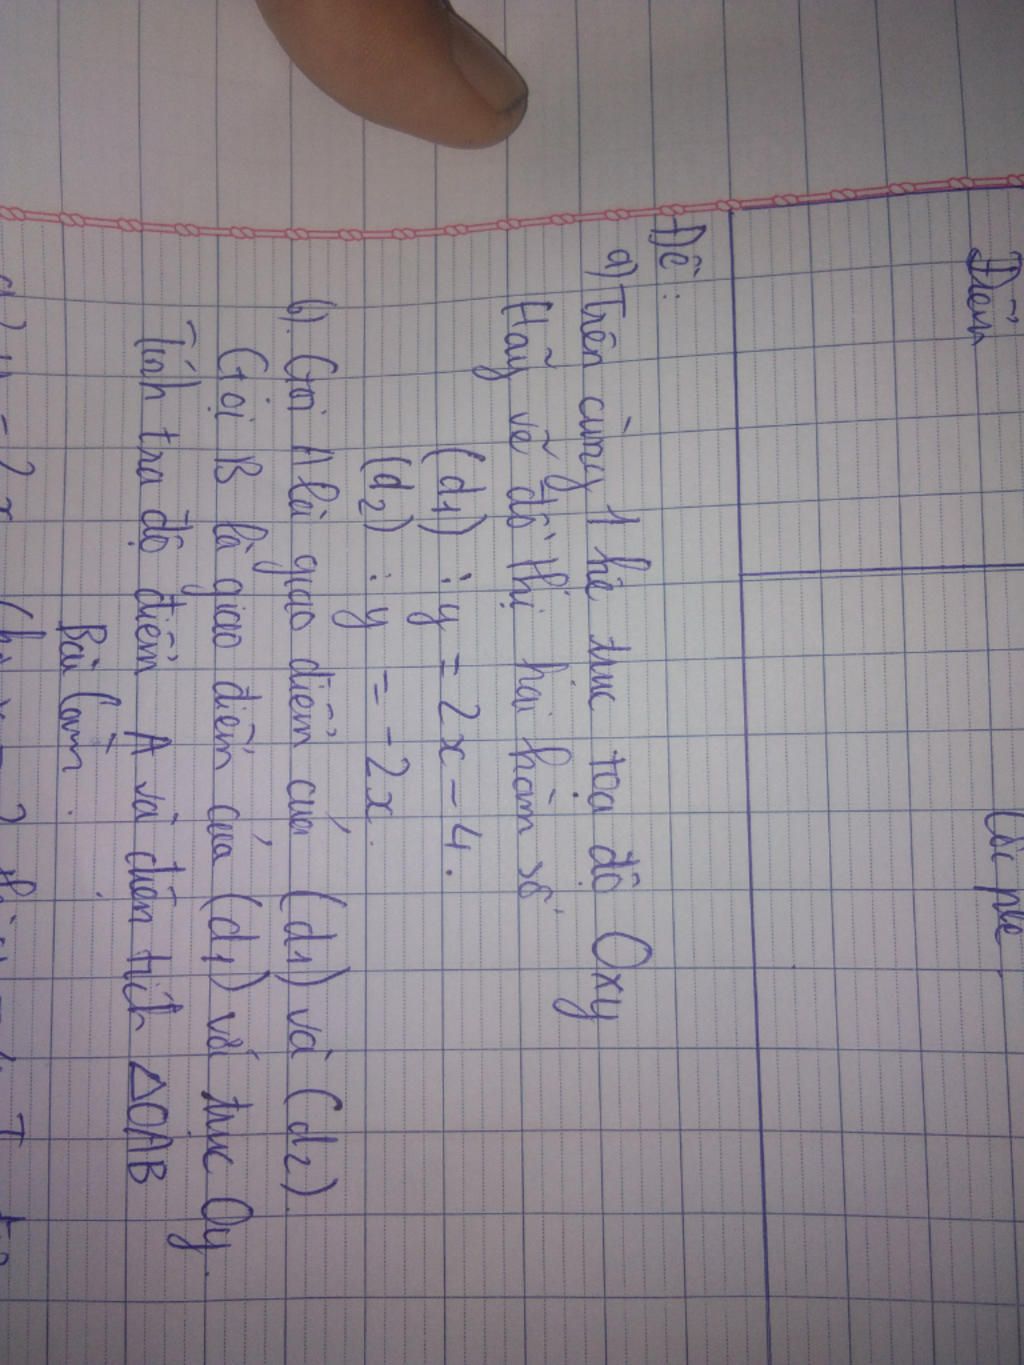 Điểm
Lời phê
Đề:
a) Trên cùng 1 hệ trục toạ độ Oxy
Hãy vẽ đồ thị hai hàm số
(d1) : y = 2x - 4.
(d2) : y = -2x.
b). Gọi A là giao điểm của (d1) và (d2)
Gọi B là giao điểm của (d1) với trục Oy.
Tính tọa độ điểm A và diện tích ΔOAB
Bài làm.